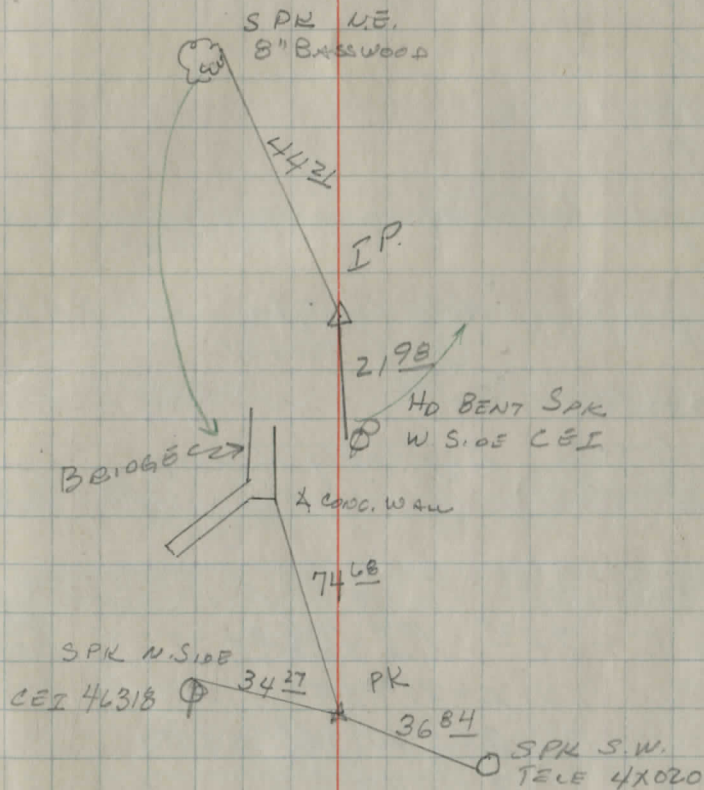 SPK N.E.
8" BASSWOOD
44 21
I P.
21 98
HD BENT SPK
W SIDE CEI
BRIDGE
∠ CONC. WALL
74 68
SPK N. SIDE
CEI 46318
34 27
PK
36 84
SPK S.W.
TELE 4X020